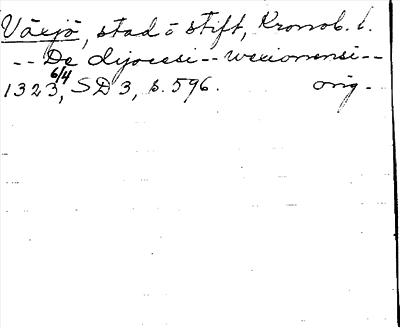 Växjö, stad o stift, Kronob. l.
-- De dyocesi -- wexionensi --
1323 6/4, SD 3, s. 596. orig.